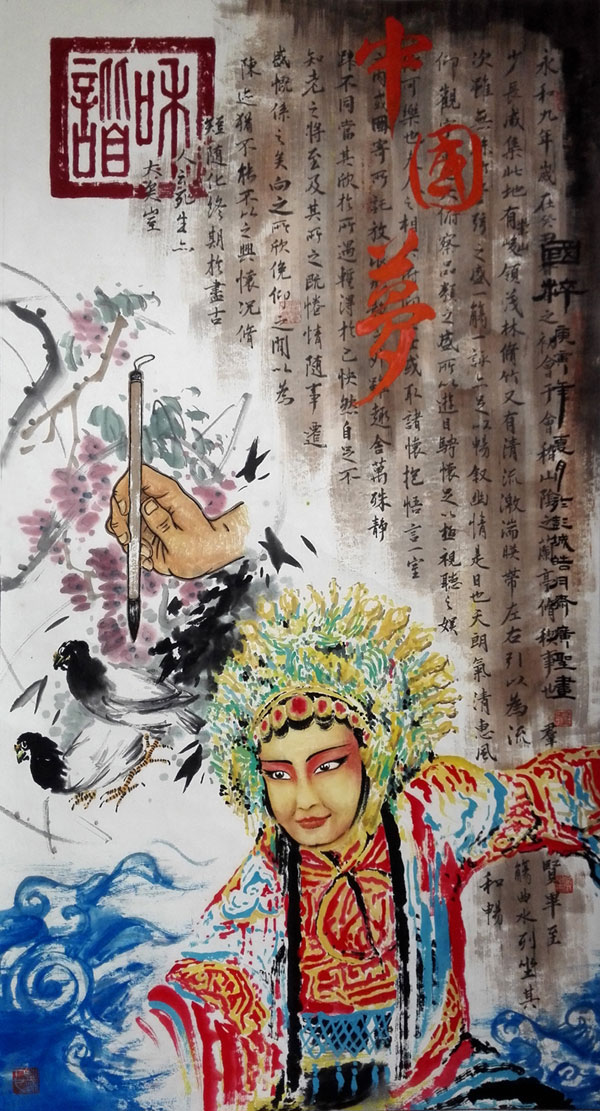 和諧
中國夢
國粹
庚寅年夏月於彭城皓月齋廣聖畫
永和九年歲在癸丑之初會于會稽山陰之蘭亭脩禊事也羣
賢畢至
少長咸集此地有峻領茂林脩竹又有清流激湍暎帶左右引以為流
觴曲水列坐其
次雖無之盛一觴一詠亦足以暢叙幽情是日也天朗氣清惠風
和暢
仰觀俯察品類之盛所以遊目騁懷足以極視聽之娛
可樂也夫人之相或取諸懷抱悟言一室
內或因寄所託放外雖趣舍萬殊靜
躁不同當其欣於所遇輙得於己快然自足不
知老之將至及其所之既惓情隨事遷
感慨係之矣向之所欣俛仰之閒以為
陳迹猶不能不以之興懷況脩
短隨化終期於盡古
人云死生亦
大矣豈